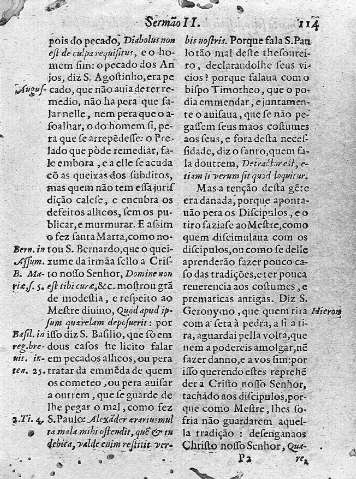 Sermão II. 114
pois do pecado, Diabolus non
est de culpa requisitus, e o ho-
mem sim: o pecado dos An-
jos, diz S. Agostinho, era pe
August. cado, que não auia de ter re-
medio, não ha pera que fa-
lar nelle, nem pera que o a-
soalhar, o do homem si, pe
ra que se arrepēdesse. o Pre-
lado que pòde remediar, fa-
le embora, e a elle se acuda
cō as queixas dos subditos,
mas quem não tem essa juris
dição calese, e encubra os
defeitos alheos, sem os pu-
blicar, e murmurar. E assim o
fez santa Marta, como no-
Bern. in tou S. Bernardo, que o quei-
Assum. xume da irmãa fello a Cris-
B. Ma- to nosso Senhor, Domine non
riæ s. 5. est tibi curæ, &c. mostrou grã
de modestia, e respeito ao
Mestre diuino, Quod apud ip-
sum querelam deposuerit: por
Basil. in isso diz S. Basilio, que só em
reg. bre- dous casos he licito falar
uii. in- em pecados alheos, ou pera
ter. 25. tratar da emmēda de quem
os cometeo, ou pera auisar
a outrem, que se guarde de
lhe pegar o mal, como fez
2. Ti. 4. S. Paulo: Alexāder ærarius mul
ta mala mihi ostendit, quē & tu
deuita, valde enim restitit ver-
bis nostris. Porque fala S. Pau
lo tão mal deste thesourei-
ro, declarandolhe seus vi-
cios? porque falaua com o
bispo Timotheo, que o po-
dia emmendar, e juntamen-
te o auisaua, que se não pe-
gassem seus maos costumes
aos seus, e fora desta neces-
sidade, diz o santo, quem fa-
la doutrem, Detractor est, e-
tiam si verum sit quod loquitur.
Mas a tenção desta gēte
era danada, porque aponta-
uão pera os Discipulos, e o
tiro faziase ao Mestre, como
quem dissimulaua com os
discipulos, ou como se delle
aprenderão fazer pouco ca-
so das tradições, e ter pouca
reuerencia aos costumes, e
prematicas antigas. Diz S.
Geronymo, que quem tira Hieron.
com a seta à pedra, a si a ti-
ra, aguardai pella volta, que
nem a podereis amolgar, nē
fazer danno, e a vos sim: por
isso querendo estes reprehē
der a Cristo nosso Senhor,
tachado nos discipulos, por-
que como Mestre, lhes so-
fria não guardarem aquel-
la tradição: desenganaos
Christo nosso Senhor, Qua-
P 2 re